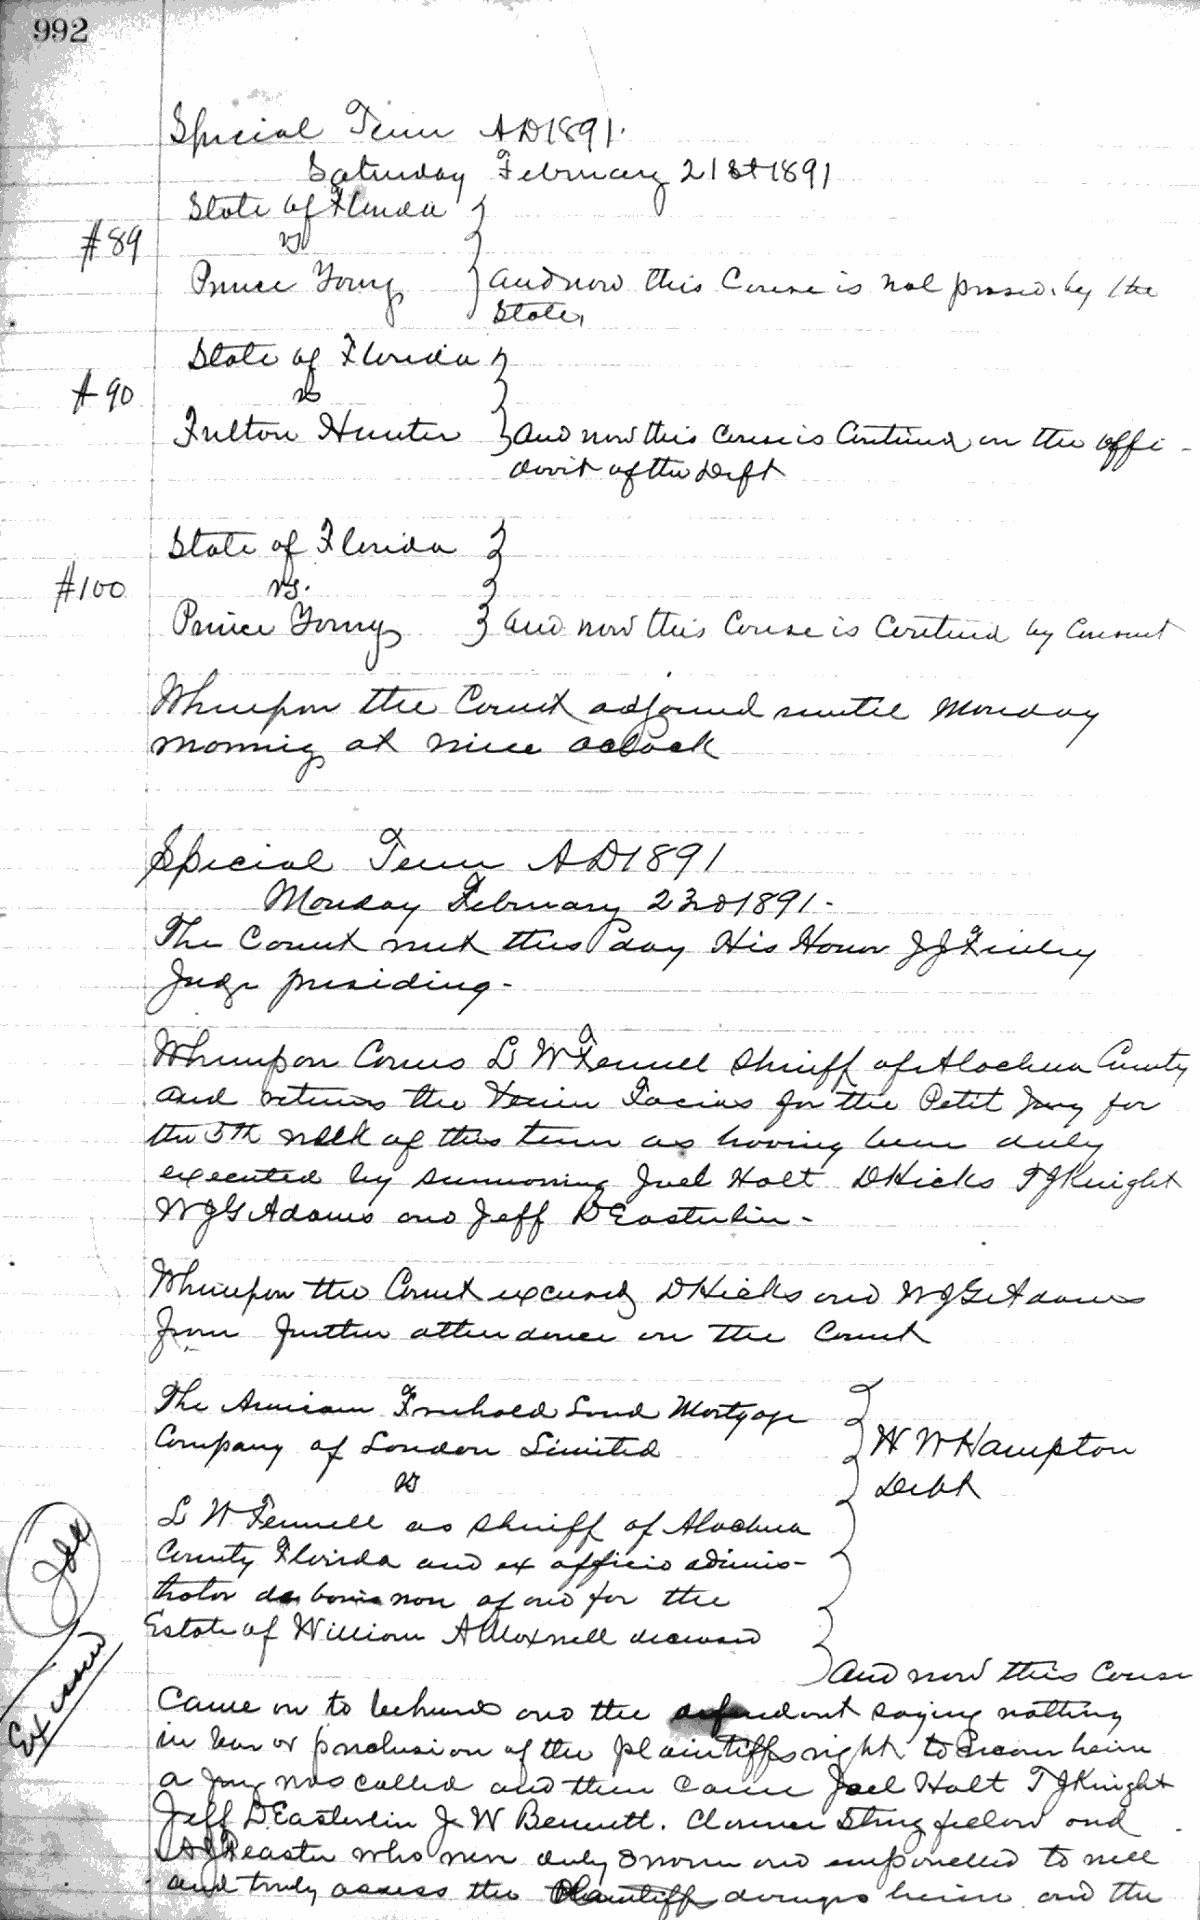 992
Special Term AD 1891.
Saturday February 21st 1891
State of Florida
#89 vs
Prince Young and now this Cause is nol prossed by the
State,
State of Florida
#90 vs
Fulton Hunter and now this Cause is Continued on the affi-
davit of the Deft
State of Florida
#100 vs.
Prince Young and now this Cause is Continued by Consent
Whereupon the Court adjourned until Monday
morning at nine oclock
Special Term AD 1891
Monday February 23rd 1891-
The Court met this day His Honor J J Finley
Judge presiding-
Whereupon Comes L W Fennell Sheriff of Alachua County
and returns the Venire Facias for the Petit Jury for
the 5th week of this term as having been duly
executed by summoning Joel Holt D Hicks T J Knight
W J G Adams and Jeff D Easterlin-
Whereupon the Court excused D Hicks and W J G Adams
from further attendance on the Court
The American Freehold Land Mortgage
Company of London Limited W W Hampton
vs Debt
L W Fennell as Sheriff of Alachua
County Florida and ex officio adminis-
trator de bonis non of and for the
Estate of William A deceased
Ex issued
and now this Cause
Came on to be heard and the defendant saying nothing
in bar or preclusion of the plaintiffs right to recover herein
a Jury was called and then came Joel Holt T J Knight
Jeff D Easterlin J W Bennett. Clarence Stringfellow and
A J Feaster who were duly sworn and empanelled to well
and truly assess the Plaintiff damages herein and the